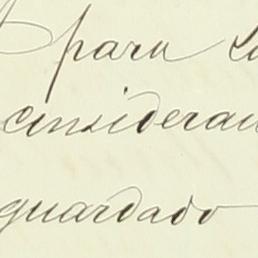 para
consideran
guardado